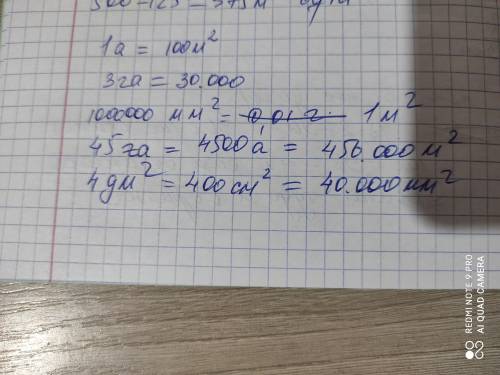 500-125=375м
1а = 100м²
3га = 30.000
1000000 мм² = 1м²
45га = 4500а = 450.000м²
4дм² = 400см² = 40.000мм²
REDMI NOTE 9 PRO
AI QUAD CAMERA